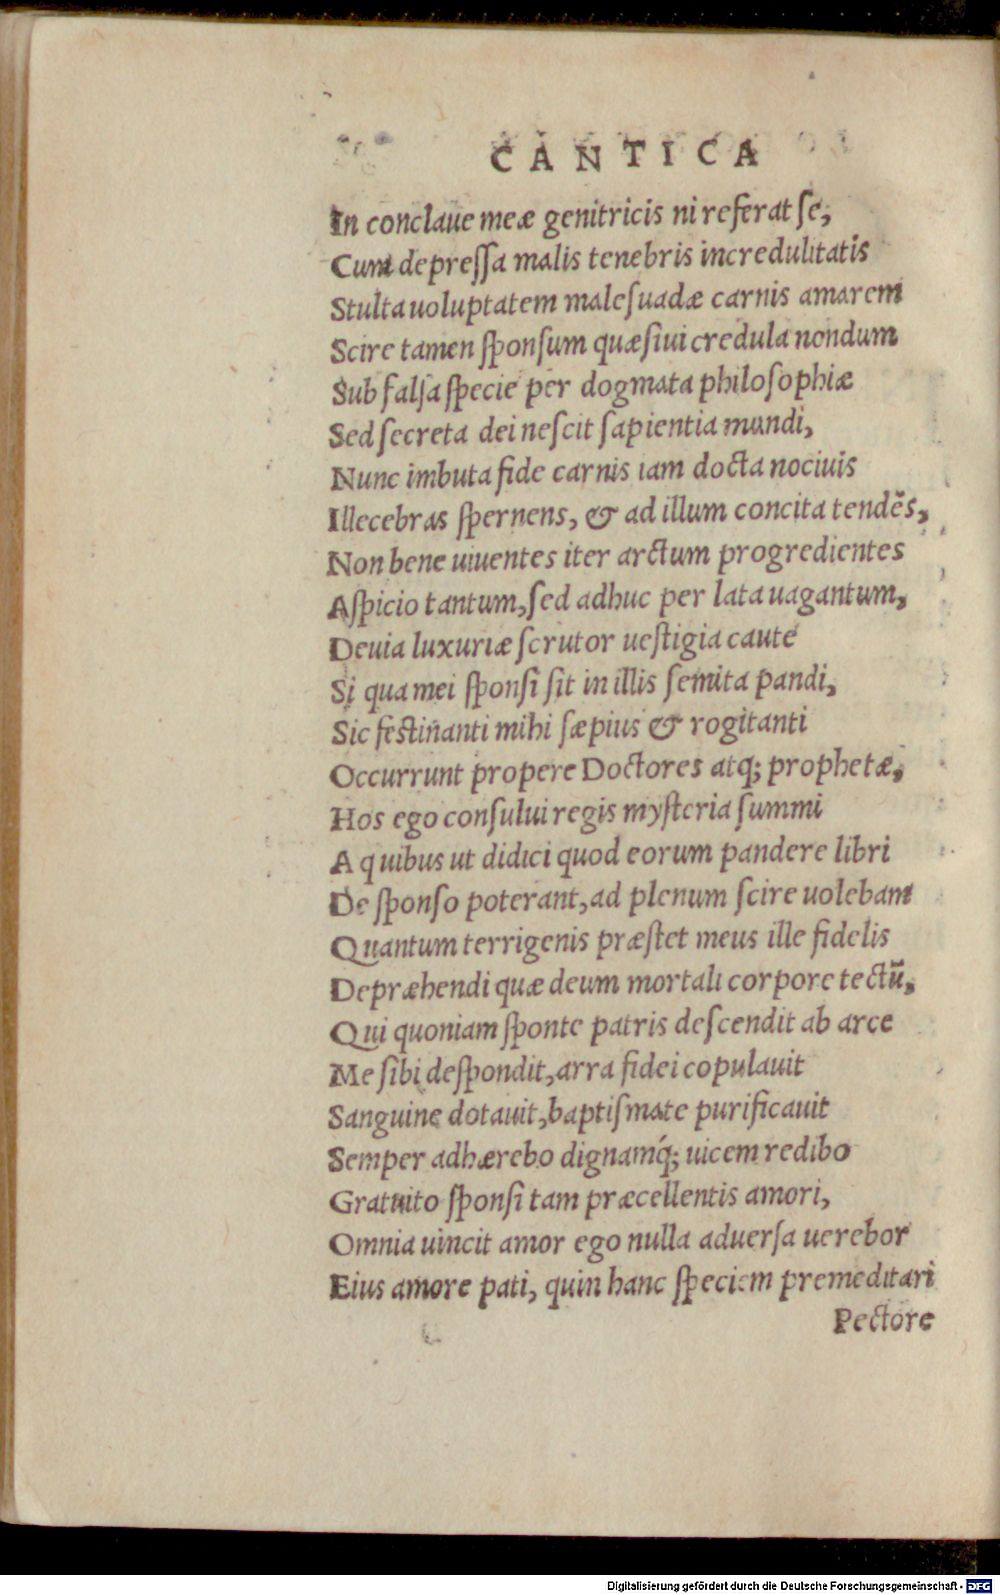 CANTICA
In conclaue meæ genitricis ni referat se,
Cum depressa malis tenebris incredulitatis
Stulta uoluptatem malesuadæ carnis amarem
Scire tamen sponsum quæsiui credula nondum
Sub falsa specie per dogmata philosophiæ
Sed secreta dei nescit sapientia mundi,
Nunc imbuta fide carnis iam docta nociuis
Illecebras spernens, & ad illum concita tendēs,
Non bene uiuentes iter arctum progredientes
Aspicio tantum, sed adhuc per lata uagantum,
Deuia luxuriæ scrutor uestigia caute
Si qua mei sponsi sit in illis semita pandi,
Sic festinanti mihi sæpius & rogitanti
Occurrunt propere Doctores atq; prophetæ,
Hos ego consului regis mysteria summi
A quibus ut didici quod eorum pandere libri
De sponso poterant, ad plenum scire uolebam
Quantum terrigenis præstet meus ille fidelis
Depræhendi quæ deum mortali corpore tectū,
Qui quoniam sponte patris descendit ab arce
Me sibi despondit, arra fidei copulauit
Sanguine dotauit, baptismate purificauit
Semper adhærebo dignamq́; uicem redibo
Gratuito sponsi tam præcellentis amori,
Omnia uincit amor ego nulla aduersa uerebor
Eius amore pati, quin hanc speciem premeditari
Pectore
Digitalisierung gefördert durch die Deutsche Forschungsgemeinschaft - DFG